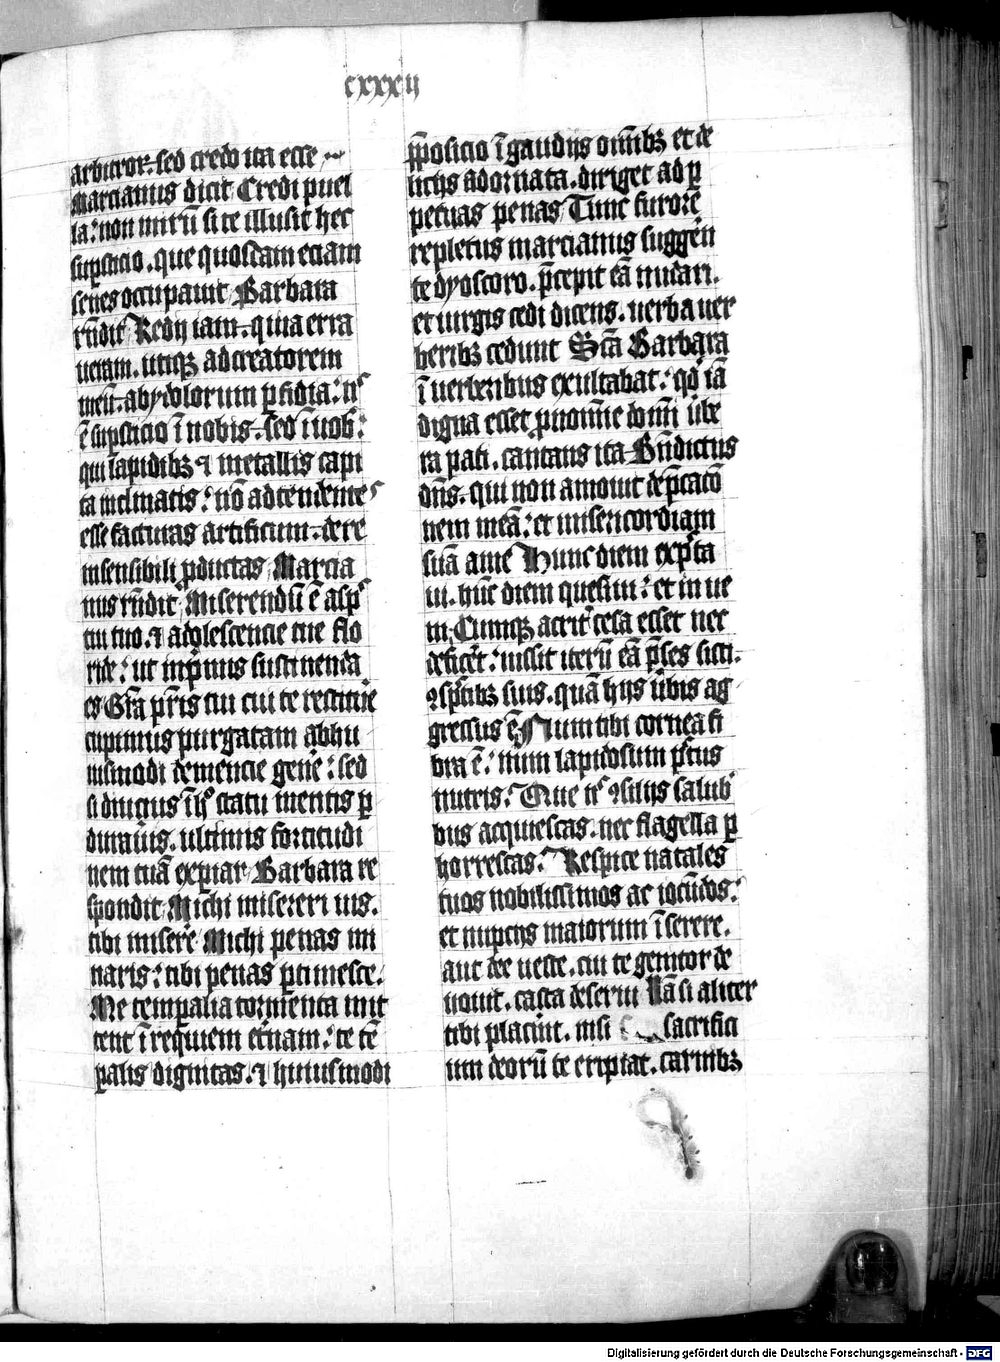 cxxxij
arbitror. sed credo ita esse
Marcianus dicit Credi puel
la: non mirū si te illusit hec
suꝑsticio. que quosdam eciam
senes occupauit Barbara
rn̄dit Redij iam. quia erra
ueram. utiqꝫ ad creatorem
meū. ab ydolorum ꝑfidia:
ē suꝑsticio ī nobis. sed ī uob:
qui lapidibꝫ ⁊ metallis capi
ta inclinatis: nō adtendentes
esse facturas artificum. de re
insensibili ꝓductas Marcia
nus rn̄dit Miserendū ē asp
tui tuo. ⁊ adolescencie tue flo
ride: ut inp̄mis sustinenda
es Gr̄a pr̄is tui cui te restitue
cupimus purgatam ab hu
iusmodi demencie gen̄e: sed
si diucius ī statu mentis ꝑ
duraūis. ultimis fortitudi
nem tuā exꝑiar Barbara re
spondit Michi misereri uis.
tibi miserē Michi penas mi
naris: tibi penas ꝑtimesce.
Me temꝑalia tormenta mit
tent ī requiem et̄nam: te tē
ꝑalis dignitas. ⁊ huiusmodi
ꝓposicio ī gaudijs omībꝫ et de
licijs adornata. diriget ad ꝑ
petuas penas Tunc furorē
repletus marcianus suggeren
te dyoscoro. p̄cepit eā nudari.
et uirgis cedi dicens. uerba uer
beribꝫ cedunt Scā Barbara
ī uerberibus exultabat: qd̄ iā
digna esset ꝓ nomīe domī ube
ra pati. cantans ita Bn̄dictus
dn̄s. qui non amouit dep̄cacō
nem meā: et misericordiam
suā a me Hunc diem expecta
ui. hūc diem quesiui: et in ue
ni. Cumqꝫ acrit̄ cesa esset nec
deficet: iussit iterū eā p̄ses sisti.
suis. quā hijs ūbis ag
gressus ē Num tibi cornea fi
bra ē: num lapidosum pectus
nutris: Que salub
bus acquiescas. nec flagella ꝑ
horrescas: Respice natales
tuos nobilissimos ac iocūdos:
et nupcijs maiorum īserere.
aut dee ueste. cui te genitor de
uouit. casta deserui Nā si aliter
tibi placuit. nisi sacrifici
um deorū te eripiat. carnibꝫ
Digitalisierung gefördert durch die Deutsche Forschungsgemeinschaft - DFG